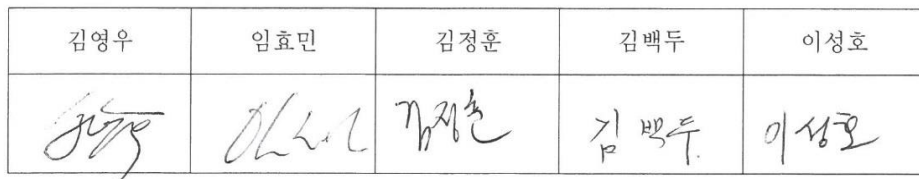 김영우 임효민 김정훈 김백두 이성호
김정훈 김백두 이성호